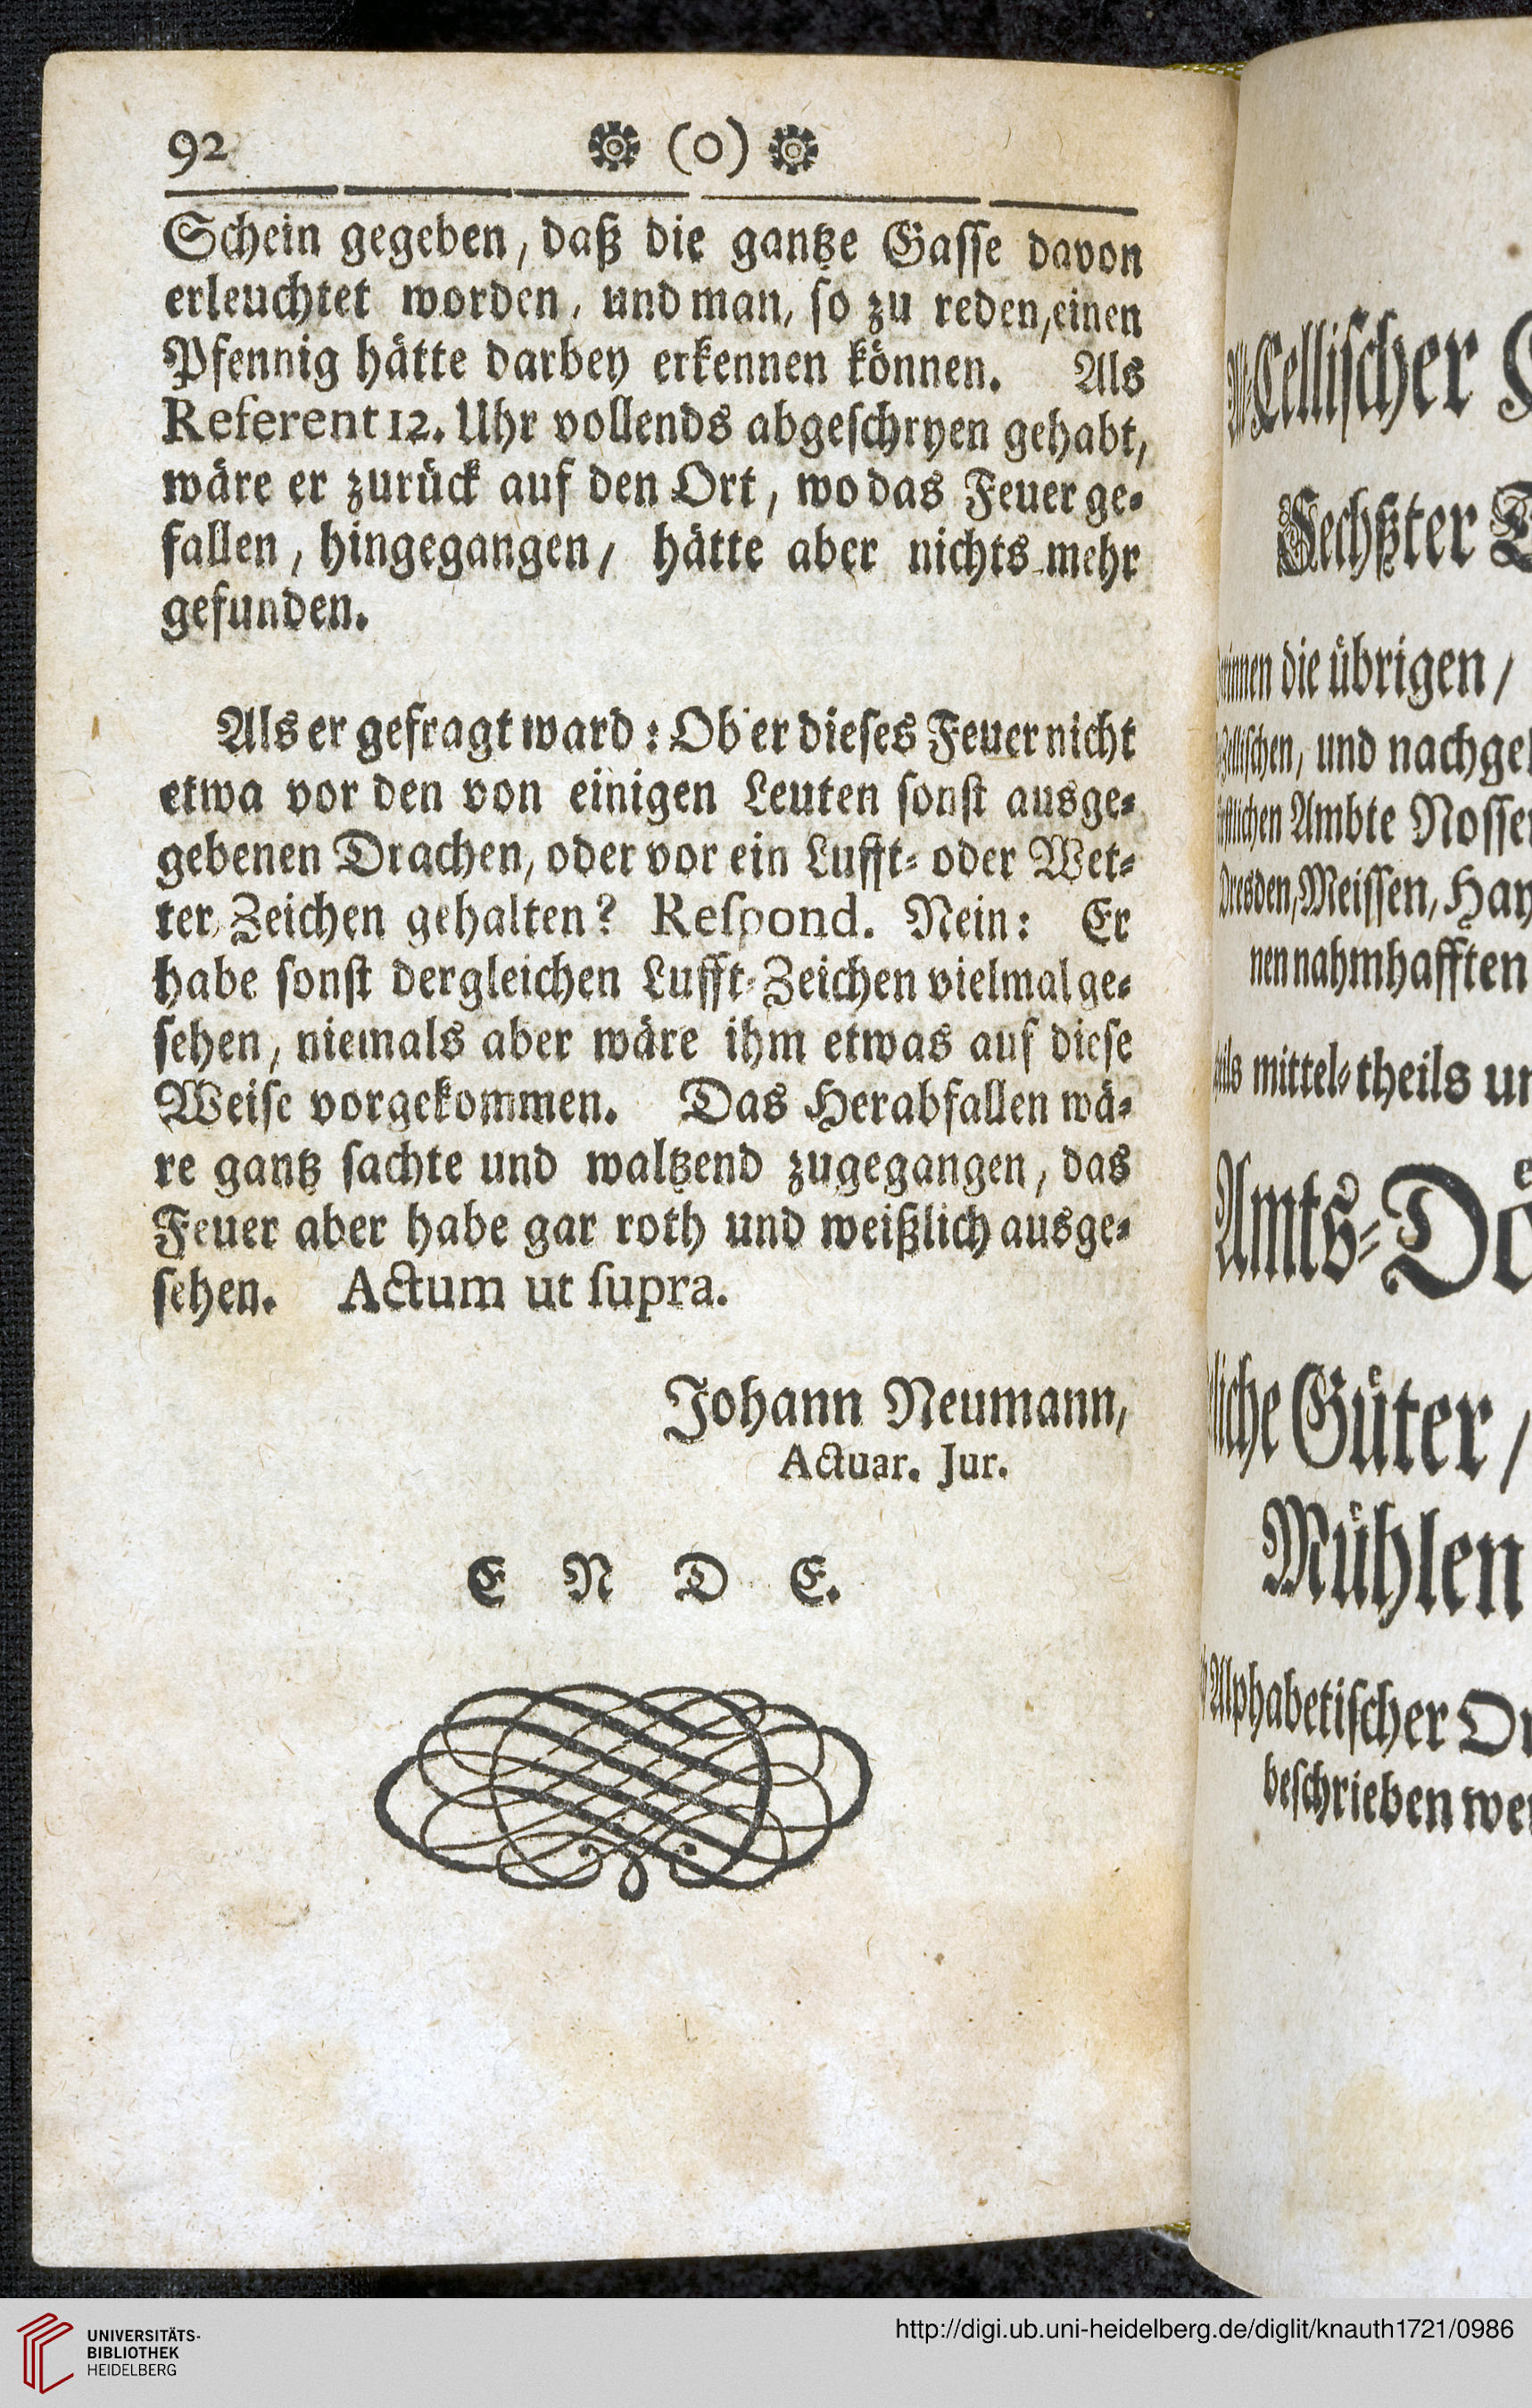 92 (o)
Schein gegeben, daß die gantze Gasse davon
erleuchtet worden, und man, so zu reden, einen
Pfennig hätte darbey erkennen können. Als
Referent 12. Uhr vollends abgeschryen gehabt,
wäre er zurück auf den Ort, wo das Feuer ge-
fallen, hingegangen/ hätte aber nichts mehr
gefunden.
Als er gefragt ward: Ob er dieses Feuer nicht
etwa vor den von einigen Leuten sonst ausge-
gebenen Drachen, oder vor ein Lufft- oder Wet-
ter Zeichen gehalten? Respond. Nein: Er
habe sonst dergleichen Lufft-Zeichen vielmal ge-
sehen, niemals aber wäre ihm etwas auf diese
Weise vorgekommen. Das Herabfallen wä-
re gantz sachte und waltzend zugegangen, das
Feuer aber habe gar roth und weißlich ausge-
sehen. Actum ut supra.
Johann Neumann,
Actuar. Jur.
E N D E.
Cellischer
Sechßter
die übrigen/
und nachgel
Ambte Nossen
Dresden, Meissen, Hay
nen nahmhafften
mittel- theils un
Amts-Dö
Güter/
Mühlen
Alphabetischer Or
beschrieben wer
UNIVERSITÄTS-
BIBLIOTHEK
HEIDELBERG
http://digi.ub.uni-heidelberg.de/diglit/knauth1721/0986